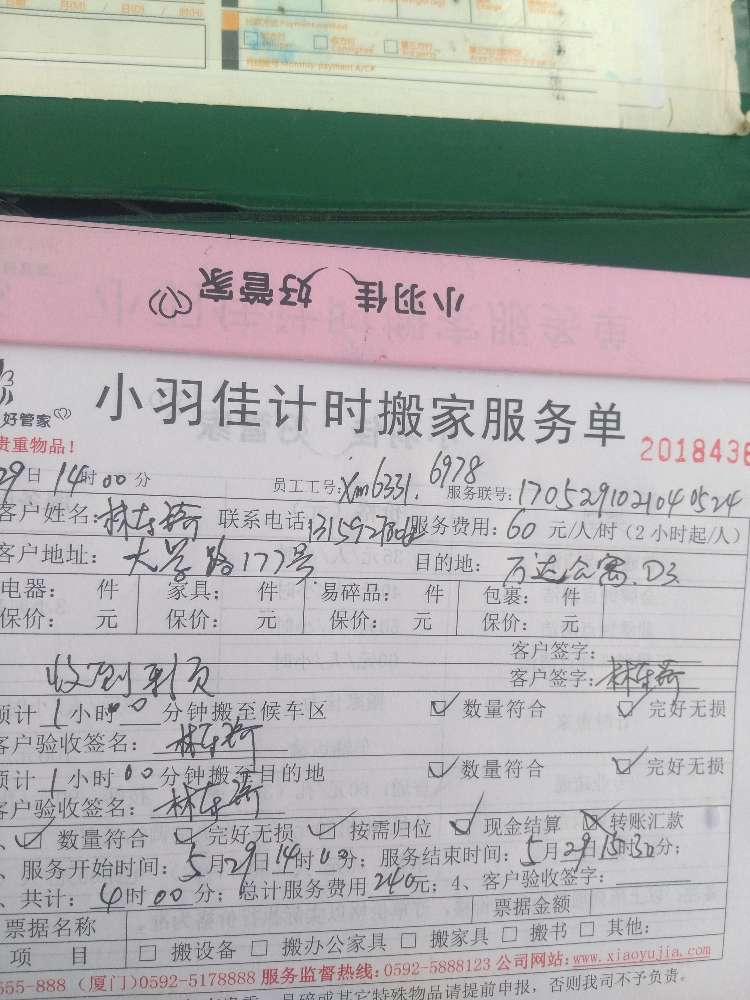 日 D(日) 月 M(月) 日/D(日) 时/H(时)
付款方式 Payment method
月结账号 Monthly payment A/C#
小羽佳 好管家
好管家
小羽佳计时搬家服务单
贵重物品！
2018438
29日14时00分 员工工号：Xm6331. 6978 服务联号：170529102104 0524
客户姓名： 联系电话： 服务费用：60元/人/时(2小时起/人)
客户地址：大学路177号 目的地：万达公寓.D3
电器： 件 家具： 件 易碎品： 件 包裹： 件
保价： 元 保价： 元 保价： 元 保价： 元
客户签字：
收到 客户签字：
预计1小时00分钟搬至候车区 ☑数量符合 ☑完好无损
客户验收签名：
预计1小时00分钟搬至目的地 ☑数量符合 ☑完好无损
客户验收签名：
、☑数量符合 ☑完好无损 ☑按需归位 ☑现金结算 ☒转账汇款
、服务开始时间：5月29日14时03分；服务结束时间：5月29日15时30分；
、共计：4时00分；总计服务费用240元；4、客户验收签字：
票据名称 票据金额
项 目 □搬设备 □搬办公家具 □搬家具 □搬书 □其他：
555-888 (厦门)0592-5178888 服务监督热线:0592-5888123 公司网站:www.xiaoyujia.com
易碎或其它特殊物品请提前申报，否则我司不予负责。